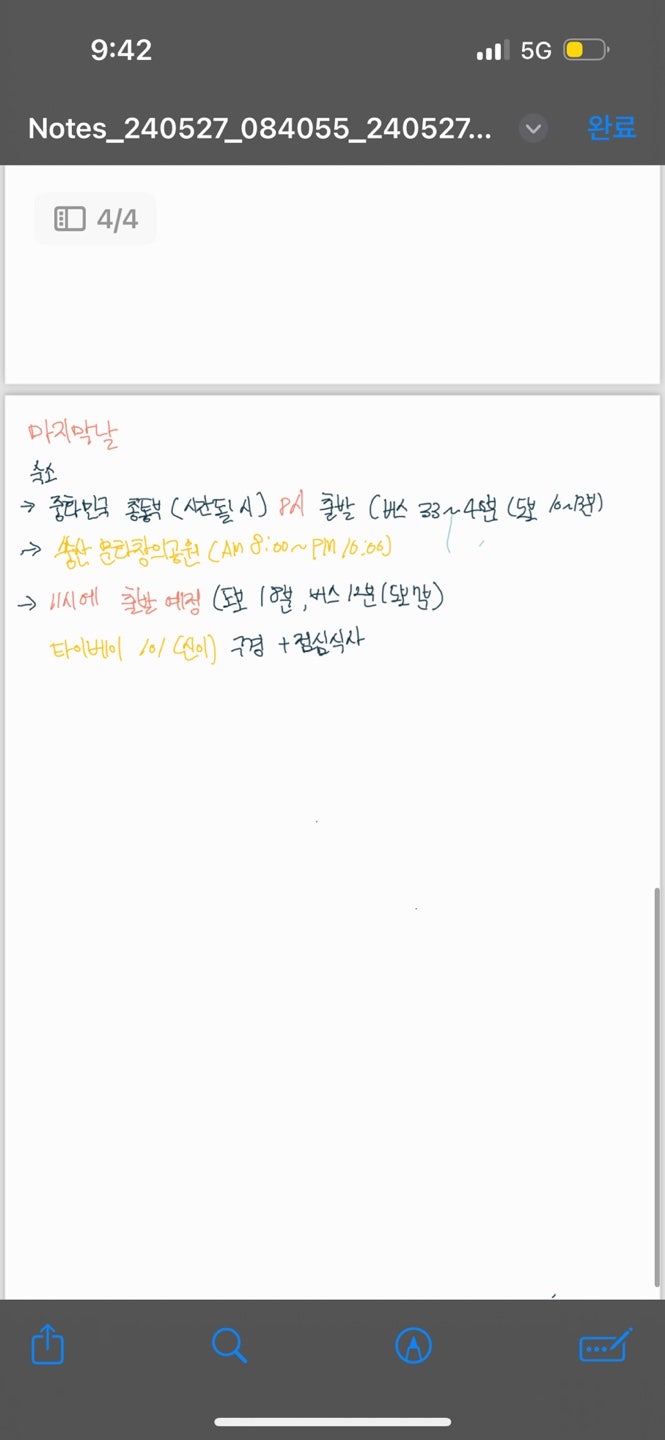 9:42
5G
Notes_240527_084055_240527...
완료
4/4
마지막날
숙소
→ 중화민국 총통부 (시간될 시) 8시 출발 (버스 33~4분 (도보 10~13분)
→ 송산 문화창의공원 (AM 8:00~PM 10:00)
→ 11시에 출발 예정 (도보 18분, 버스 12분 (도보 7분)
타이베이 101 (신이) 구경 + 점심식사